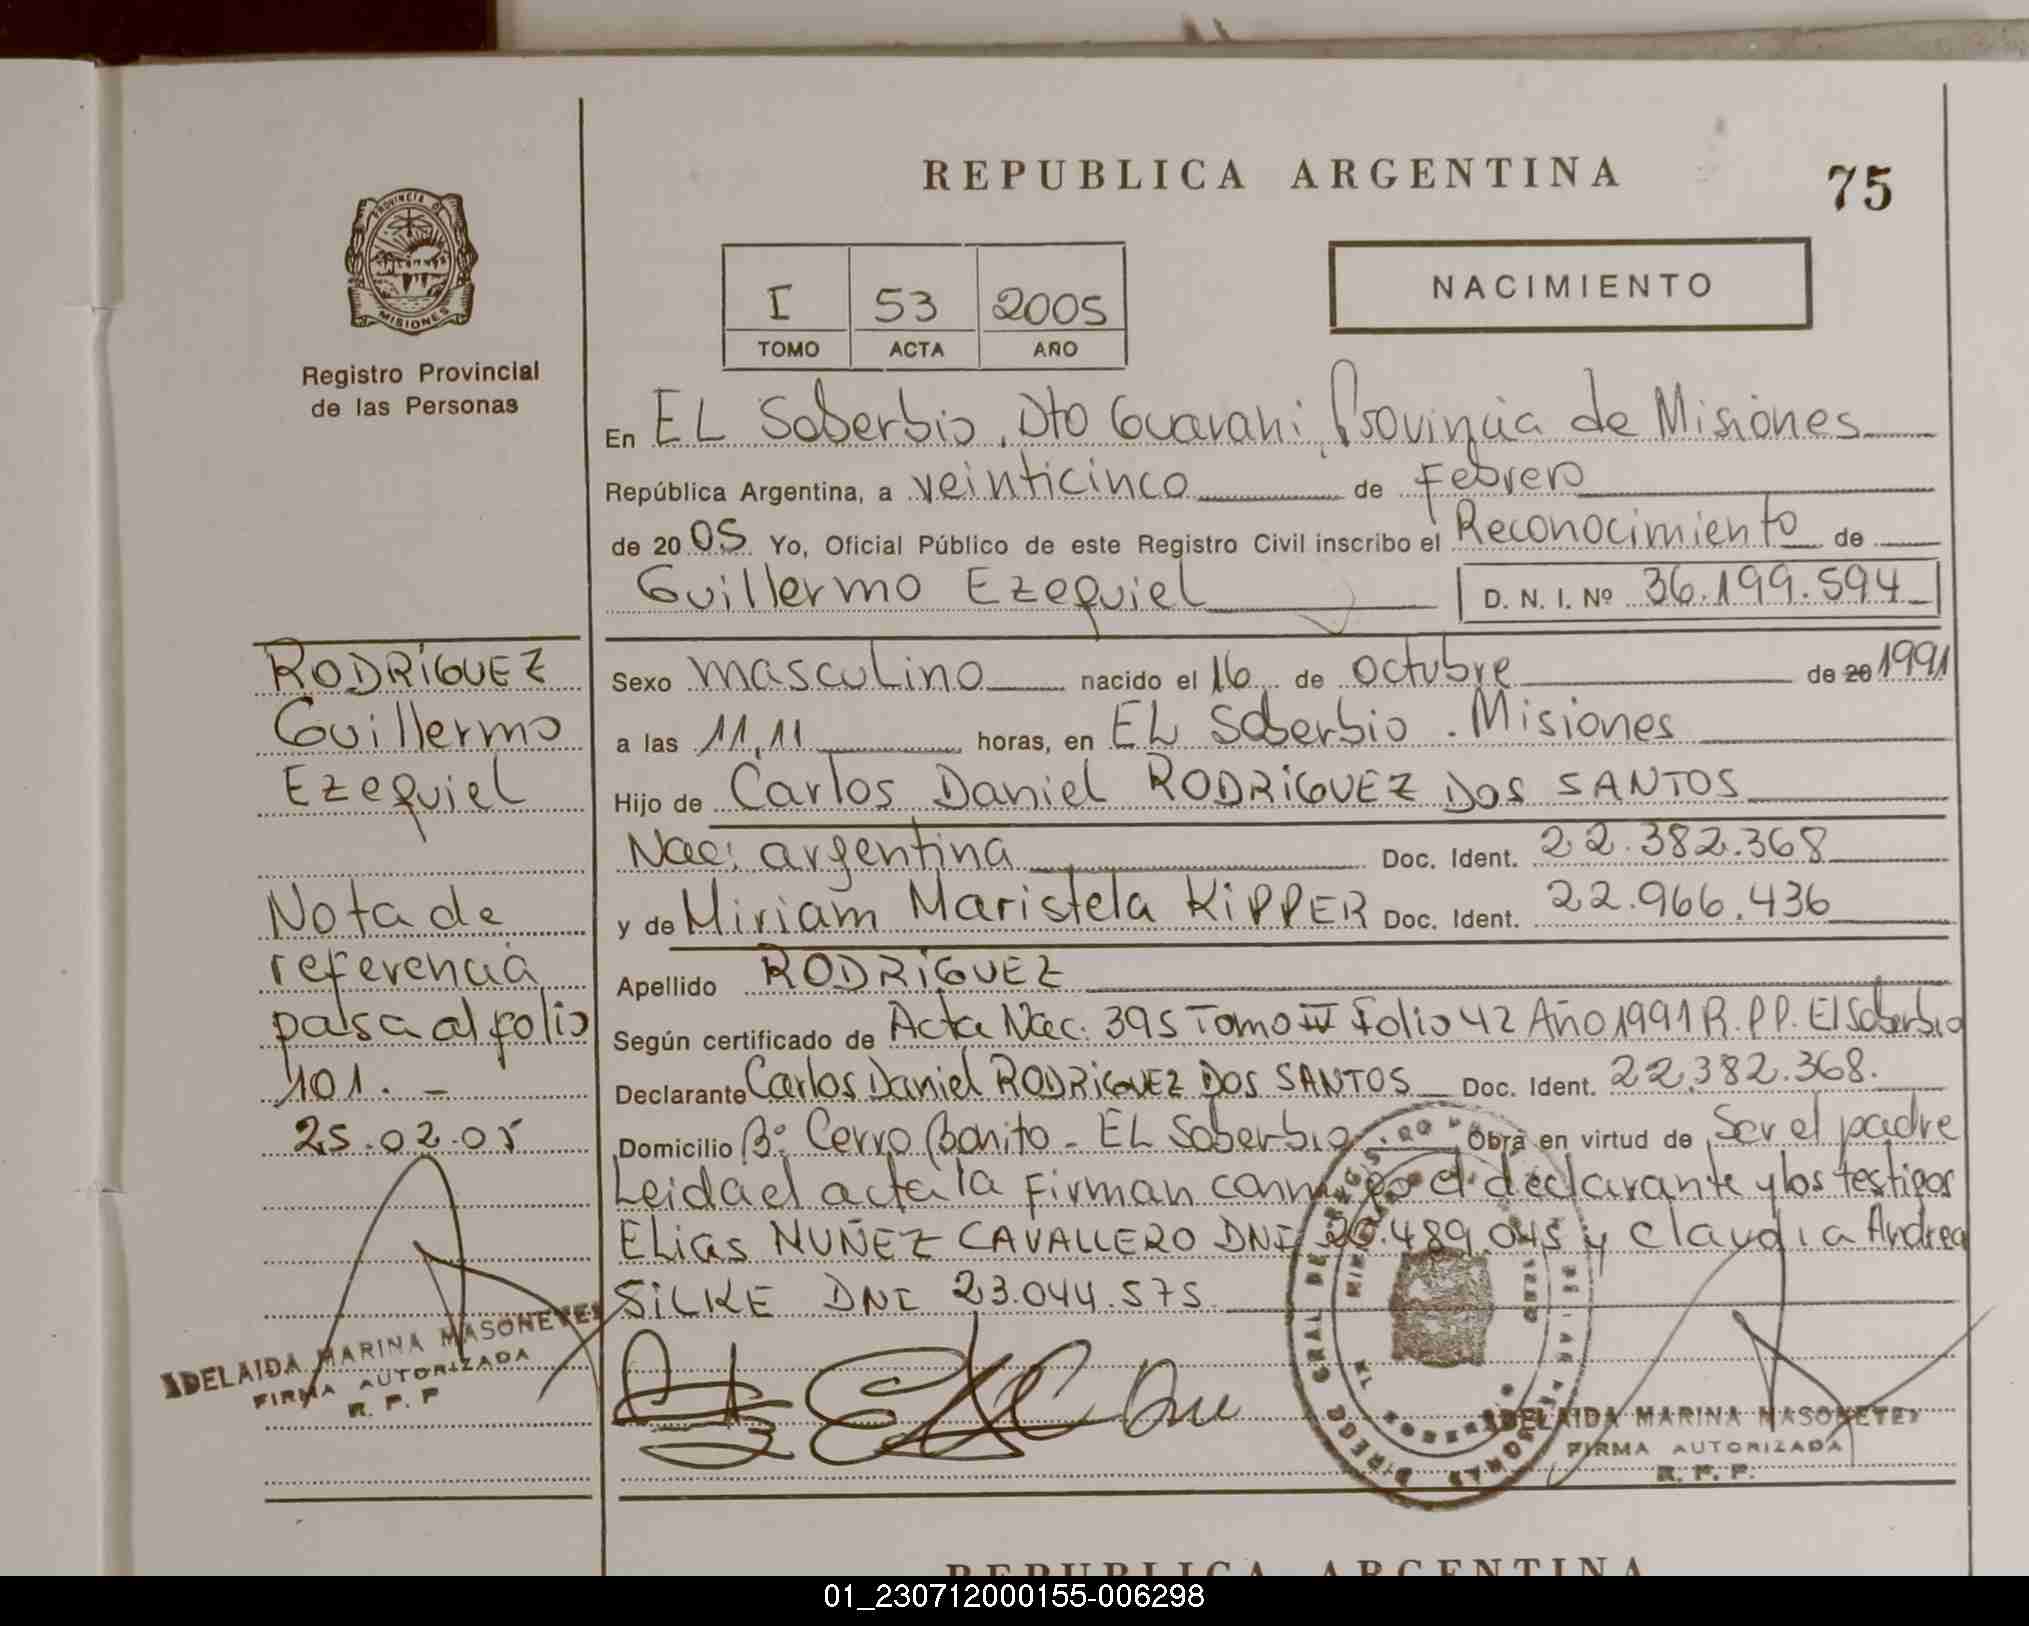 REPUBLICA ARGENTINA
75
PROVINCIA DE
MISIONES
Registro Provincial
de las Personas
I 53 2005
TOMO ACTA AÑO
NACIMIENTO
En EL Soberbio, Dto Guarani, Provincia de Misiones
República Argentina, a veinticinco de Febrero
de 2005 Yo, Oficial Público de este Registro Civil inscribo el Reconocimiento de
Guillermo Ezequiel D. N. I. Nº 36.199.594
Sexo masculino nacido el 16 de octubre de 20 1991
a las 11,11 horas, en EL Soberbio . Misiones
Hijo de Carlos Daniel RODRIGUEZ DOS SANTOS
Nac: argentina Doc. Ident. 22.382.368
y de Miriam Maristela KIPPER Doc. Ident. 22.966.436
Apellido RODRIGUEZ
Según certificado de Acta Nac: 395 Tomo IV Folio 42 Año 1991 R.P.P. El Soberbio
Declarante Carlos Daniel RODRIGUEZ DOS SANTOS Doc. Ident. 22.382.368.
Domicilio Bº Cerro Bonito - EL Soberbio Obra en virtud de Ser el padre
Leida el acta la Firman conmigo el declarante y los testigos
ELias NUÑEZ CAVALLERO DNI 20.489.045 y Claudia Andrea
SILKE DNI 23.044.575
RODRIGUEZ
Guillermo
Ezequiel
Nota de
referencia
pasa al folio
101. -
25.02.05
ADELAIDA MARINA MASONEYEI
FIRMA AUTORIZADA
R. P. P
ADELAIDA MARINA MASONEYEI
FIRMA AUTORIZADA
R. P. P.
REPUBLICA ARGENTINA
01_230712000155-006298